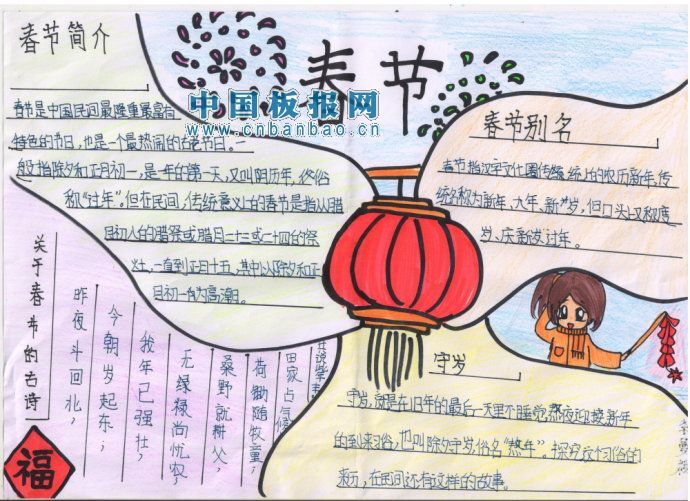 春节简介
春节是中国民间最隆重最富有
特色的节日，也是一个最热闹的古老节日。一
般指除夕和正月初一，是一年的第一天，又叫阴历年，俗
称“过年”。但在民间，传统意义上的春节是指从腊
月初八的腊祭或腊月二十三或二十四的祭
灶，一直到正月十五，其中以除夕和正
月初一为高潮。
春节
中国板报网
www.cnbanbao.cn
春节别名
春节指汉字文化圈传统上的农历新年，传
统名称为新年、大年、新岁，但口头上又称度
岁、庆新岁、过年。
关于春节的古诗
昨夜斗回北，
今朝岁起东；
我年已强壮，
无绿禄尚忧农，
桑野就耕父，
荷锄随牧童；
田家占气候
福
守岁
守岁，就是在旧年的最后一天里不睡觉熬夜迎接新年
的到来习俗，也叫除夕守岁，俗名“熬年”。探究这个习俗的
来历，在民间还有这样的故事。